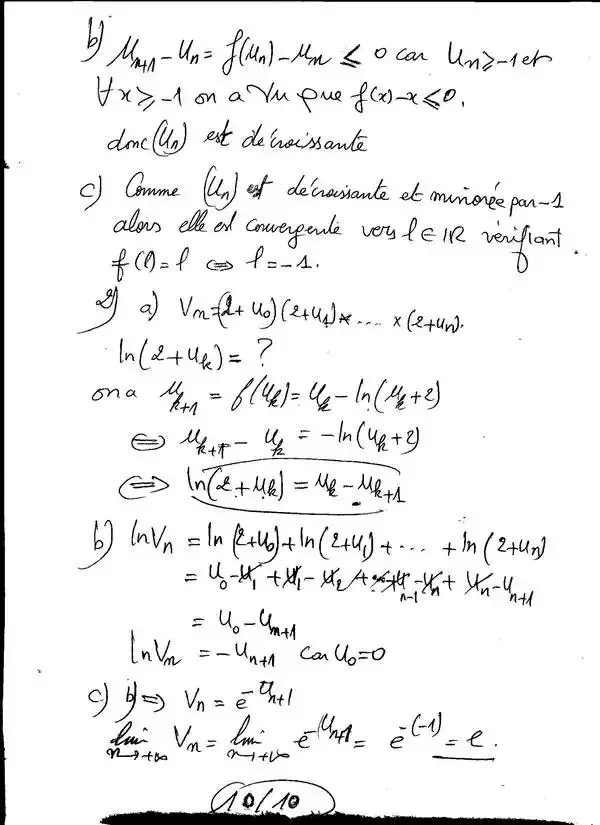 b) u_{n+1} - u_n = f(u_n) - u_n ≤ 0 car u_n ≥ -1 et
∀x ≥ -1 on a vu que f(x) - x ≤ 0.
donc (u_n) est décroissante
c) Comme (u_n) est décroissante et minorée par -1
alors elle est convergente vers l ∈ IR vérifiant
f(l) = l ⇔ l = -1.
2) a) V_n = (2+u_0)(2+u_1)× .... ×(2+u_n).
ln(2+u_k) = ?
on a u_{k+1} = f(u_k) = u_k - ln(u_k+2)
⇔ u_{k+1} - u_k = -ln(u_k+2)
⇔ ln(2+u_k) = u_k - u_{k+1}
b) lnV_n = ln(2+u_0) + ln(2+u_1) + ... + ln(2+u_n)
= u_0 - u_1 + u_1 - u_2 + ... + u_{n-1} - u_n + u_n - u_{n+1}
= u_0 - u_{n+1}
lnV_n = -u_{n+1} car u_0 = 0
c) b) ⇒ V_n = e^{-u_{n+1}}
lim_{n→+∞} V_n = lim_{n→+∞} e^{-u_{n+1}} = e^{-(-1)} = e.
10/10